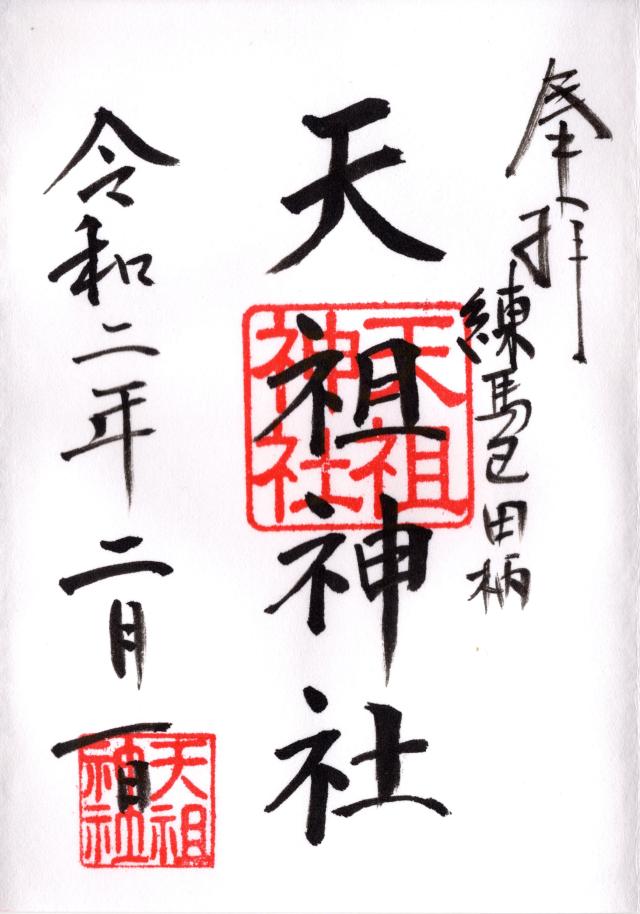 奉拝
練馬区田柄
天祖神社
天祖
神社
令和二年二月一日
天祖
神社